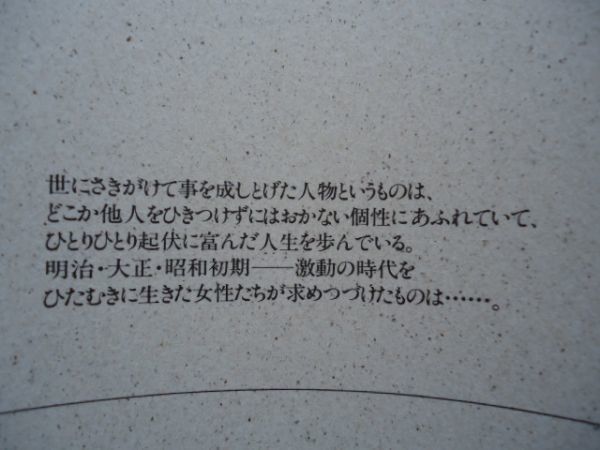 世にさきがけて事を成しとげた人物というものは、
どこか他人をひきつけずにはおかない個性にあふれていて、
ひとりひとり起伏に富んだ人生を歩んでいる。
明治・大正・昭和初期――激動の時代を
ひたむきに生きた女性たちが求めつづけたものは……。